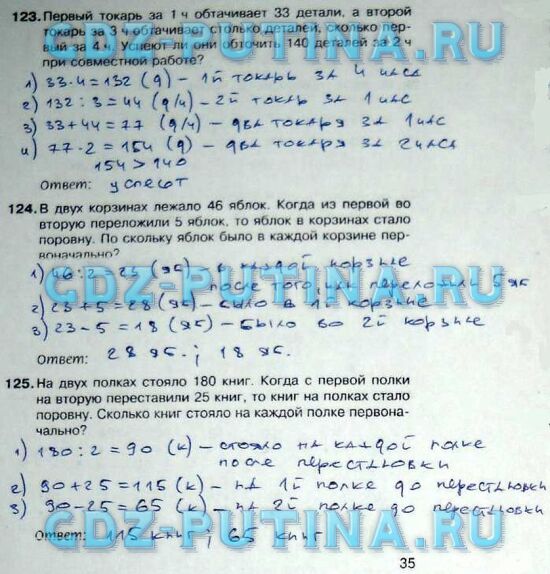 123. Первый токарь за 1 ч обтачивает 33 детали, а второй
токарь за 3 ч обтачивает столько деталей, сколько пер-
вый за 4 ч. Успеют ли они обточить 140 деталей за 2 ч
при совместной работе?
1) 33·4=132 (д) – 1й токарь за 4 часа
2) 132:3=44 (д/ч) – 2й токарь за 1 час
3) 33+44=77 (д/ч) – два токаря за 1 час
4) 77·2=154 (д) – два токаря за 2 часа
154 > 140
Ответ: успеют
GDZ-PUTINA.RU
124. В двух корзинах лежало 46 яблок. Когда из первой во
вторую переложили 5 яблок, то яблок в корзинах стало
поровну. По скольку яблок было в каждой корзине пер-
воначально?
1) 46:2=23 (яб) – в каждой корзине
после того, как переложили 5 яб
GDZ-PUTINA.RU
2) 23+5=28 (яб) – было в 1й корзине
3) 23-5=18 (яб) – было во 2й корзине
Ответ: 28 яб.; 18 яб.
125. На двух полках стояло 180 книг. Когда с первой полки
на вторую переставили 25 книг, то книг на полках стало
поровну. Сколько книг стояло на каждой полке первона-
чально?
1) 180:2=90 (к) – стояло на каждой полке
после перестановки
2) 90+25=115 (к) – на 1й полке до перестановки
3) 90-25=65 (к) – на 2й полке до перестановки
Ответ: 115 книг; 65 книг
GDZ-PUTINA.RU
35